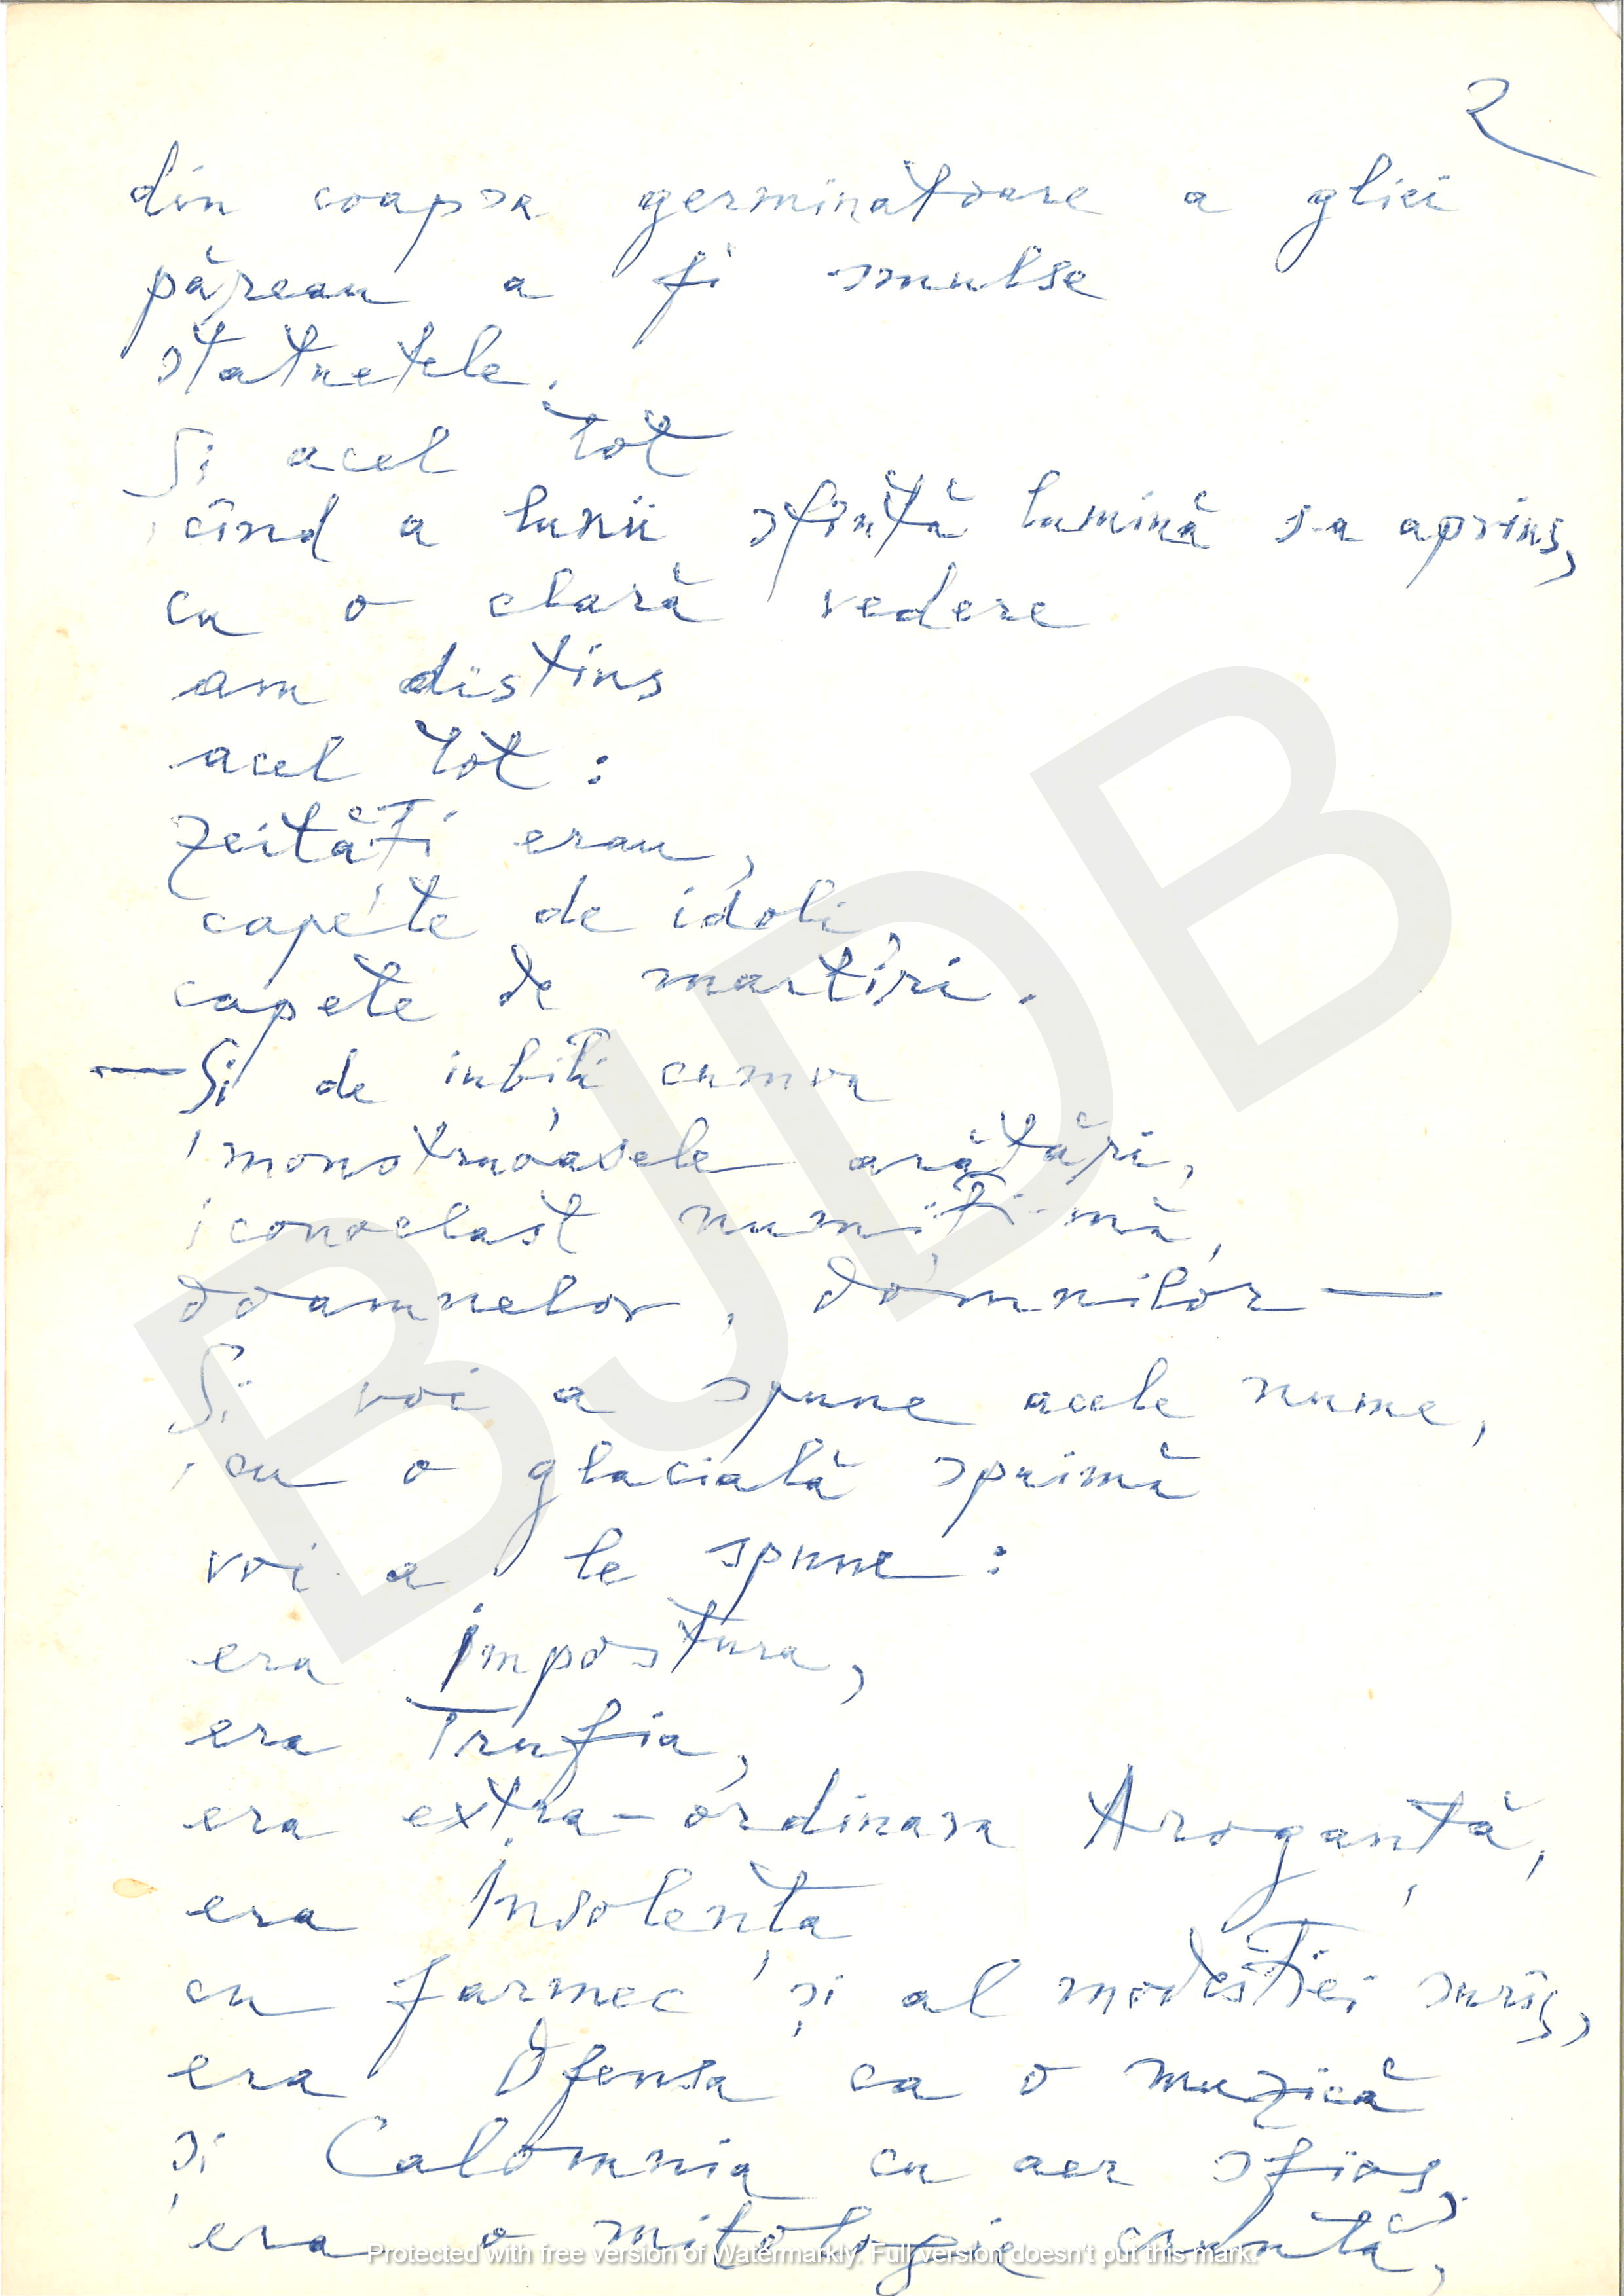 2
din coapsa germinatoare a gliei
păreau a fi smulse
statuetele.
Și acel tot
cînd a lunii sfîntă lumină s-a aprins,
cu o clară vedere
am distins
acel tot:
zeități erau,
capete de idoli,
capete de martiri.
— Și de iubiți cumva
monstruoasele arătări,
iconoclast numiți-mă,
doamnelor, domnilor —
Și voi a spune acele nume,
cu o glacială spaimă
voi a le spune:
era Impostura,
era Trufia,
era extra-ordinara Aroganță,
era Insolența
cu farmec și al modestiei surîs,
era Ofensa ca o muzică
și Calomnia cu aer sfios,
era o mitologie cruntă,
BJDB
Protected with free version of Watermarkly. Full version doesn't put this mark.